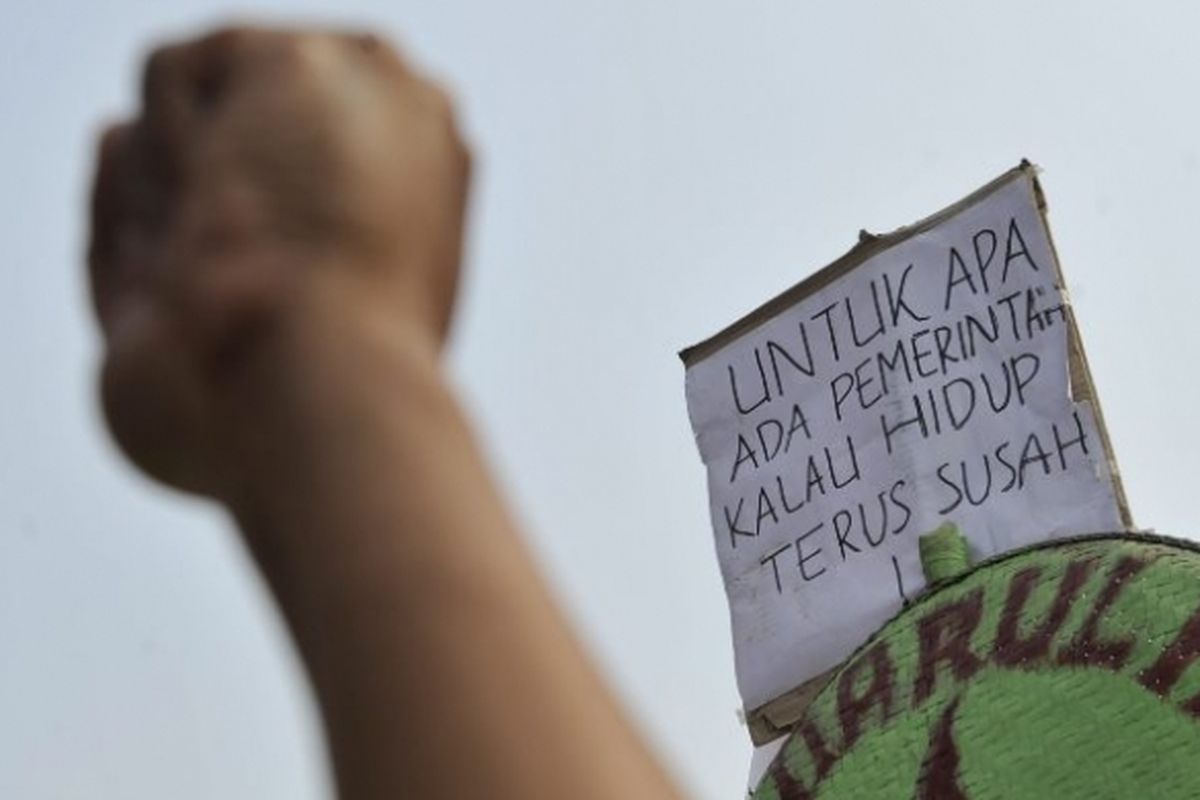 UNTUK APA
ADA PEMERINTAH
KALAU HIDUP
TERUS SUSAH
!